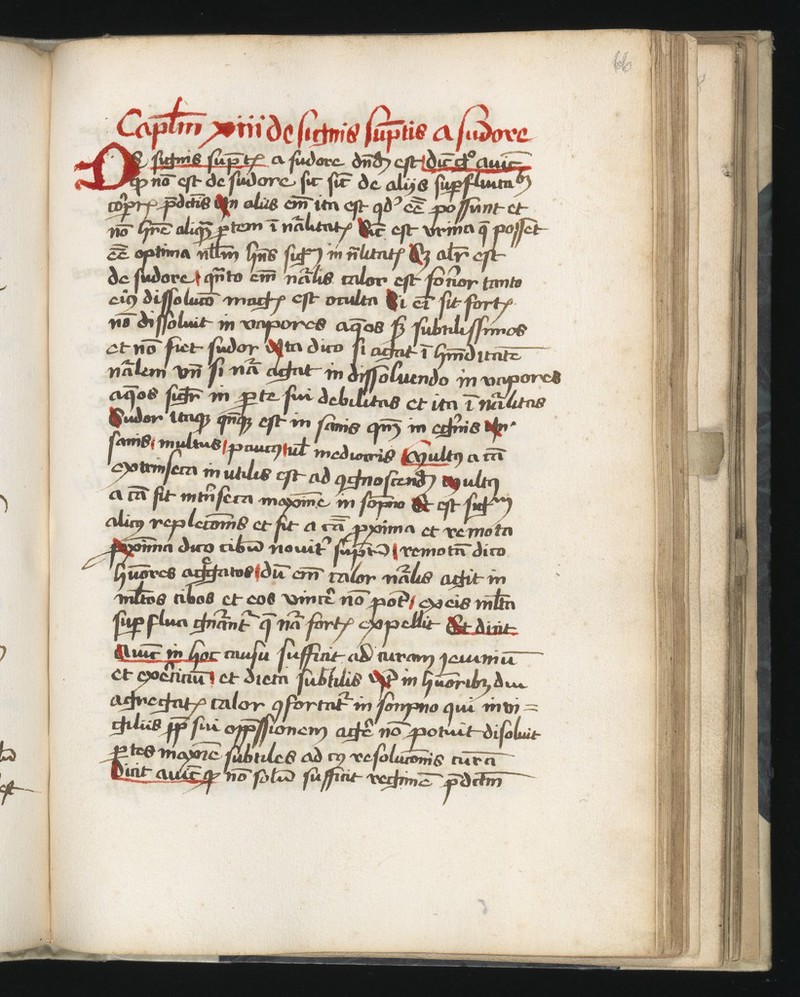 66
Capłm xiiii de signis sūptis a sudore
De signis sūpt a sudore dn̄dū est dic̄ gͦ auic̄
ꝙ nō est de sudore sic sic̄ de aliis suꝑfluitatibꝫ
corꝑis p̄dc̄is In aliis em̄ ita est qdͦ eē possunt et
nō hr̄e aliquā ꝑtem ī nālitate Sic̄ est vrina q̄ posset
eē optima nłłm hn̄s sigm in nālitate Sꝫ alr̄ est
de sudore qn̄to em̄ nālis calor est forcior tanto
eius dissolucō magis est oculta Si em̄ sit fortis
nō dissoluit in vapores aq̄os sꝫ subtilissimos
et nō fiet sudor Ita dico si agat ī hūiditatē
nālem vn̄ si nā agat in dissoluendo in vapores
aq̄os sigr in ꝑte sui debilitas et ita ī nālitas
Sudor itaqꝫ qn̄qꝫ est in sanis qn̄qꝫ in egris In
sanis multus paucus uł mediocris Multus a cā
extrinseca inutilis est ad ꝯgnoscendū Multus
a cā sit intn̄seca maxime in sompno Et est sigm
alicuius replecōnis et fit a cā ꝓxima et remota
ꝓxima dico cibū nouit sūptū remotā dico
hūores aggregatos dū em̄ calor nālis agit in
młtos cibos et eos vincē nō potͭ ex eis mlta
suꝑflua gn̄antͬ q̄ nā fortis expellit Et dicit
Auic̄ in hoc casu sufficit ad curam ieiuniū
et exerciciū et dieta subtilis Qꝛ in hūoribꝫ diu
agregatis calor ꝯfortatͬ in sompno qui in vi=
giliis ꝓpͭ sui opp̄ssionem agē nō potuit disoluit
ꝑtes maxīe subtiles ad cuius resolucōnis curā
Dicit auic̄ ꝙ nō solū sufficit regimē p̄dc̄m